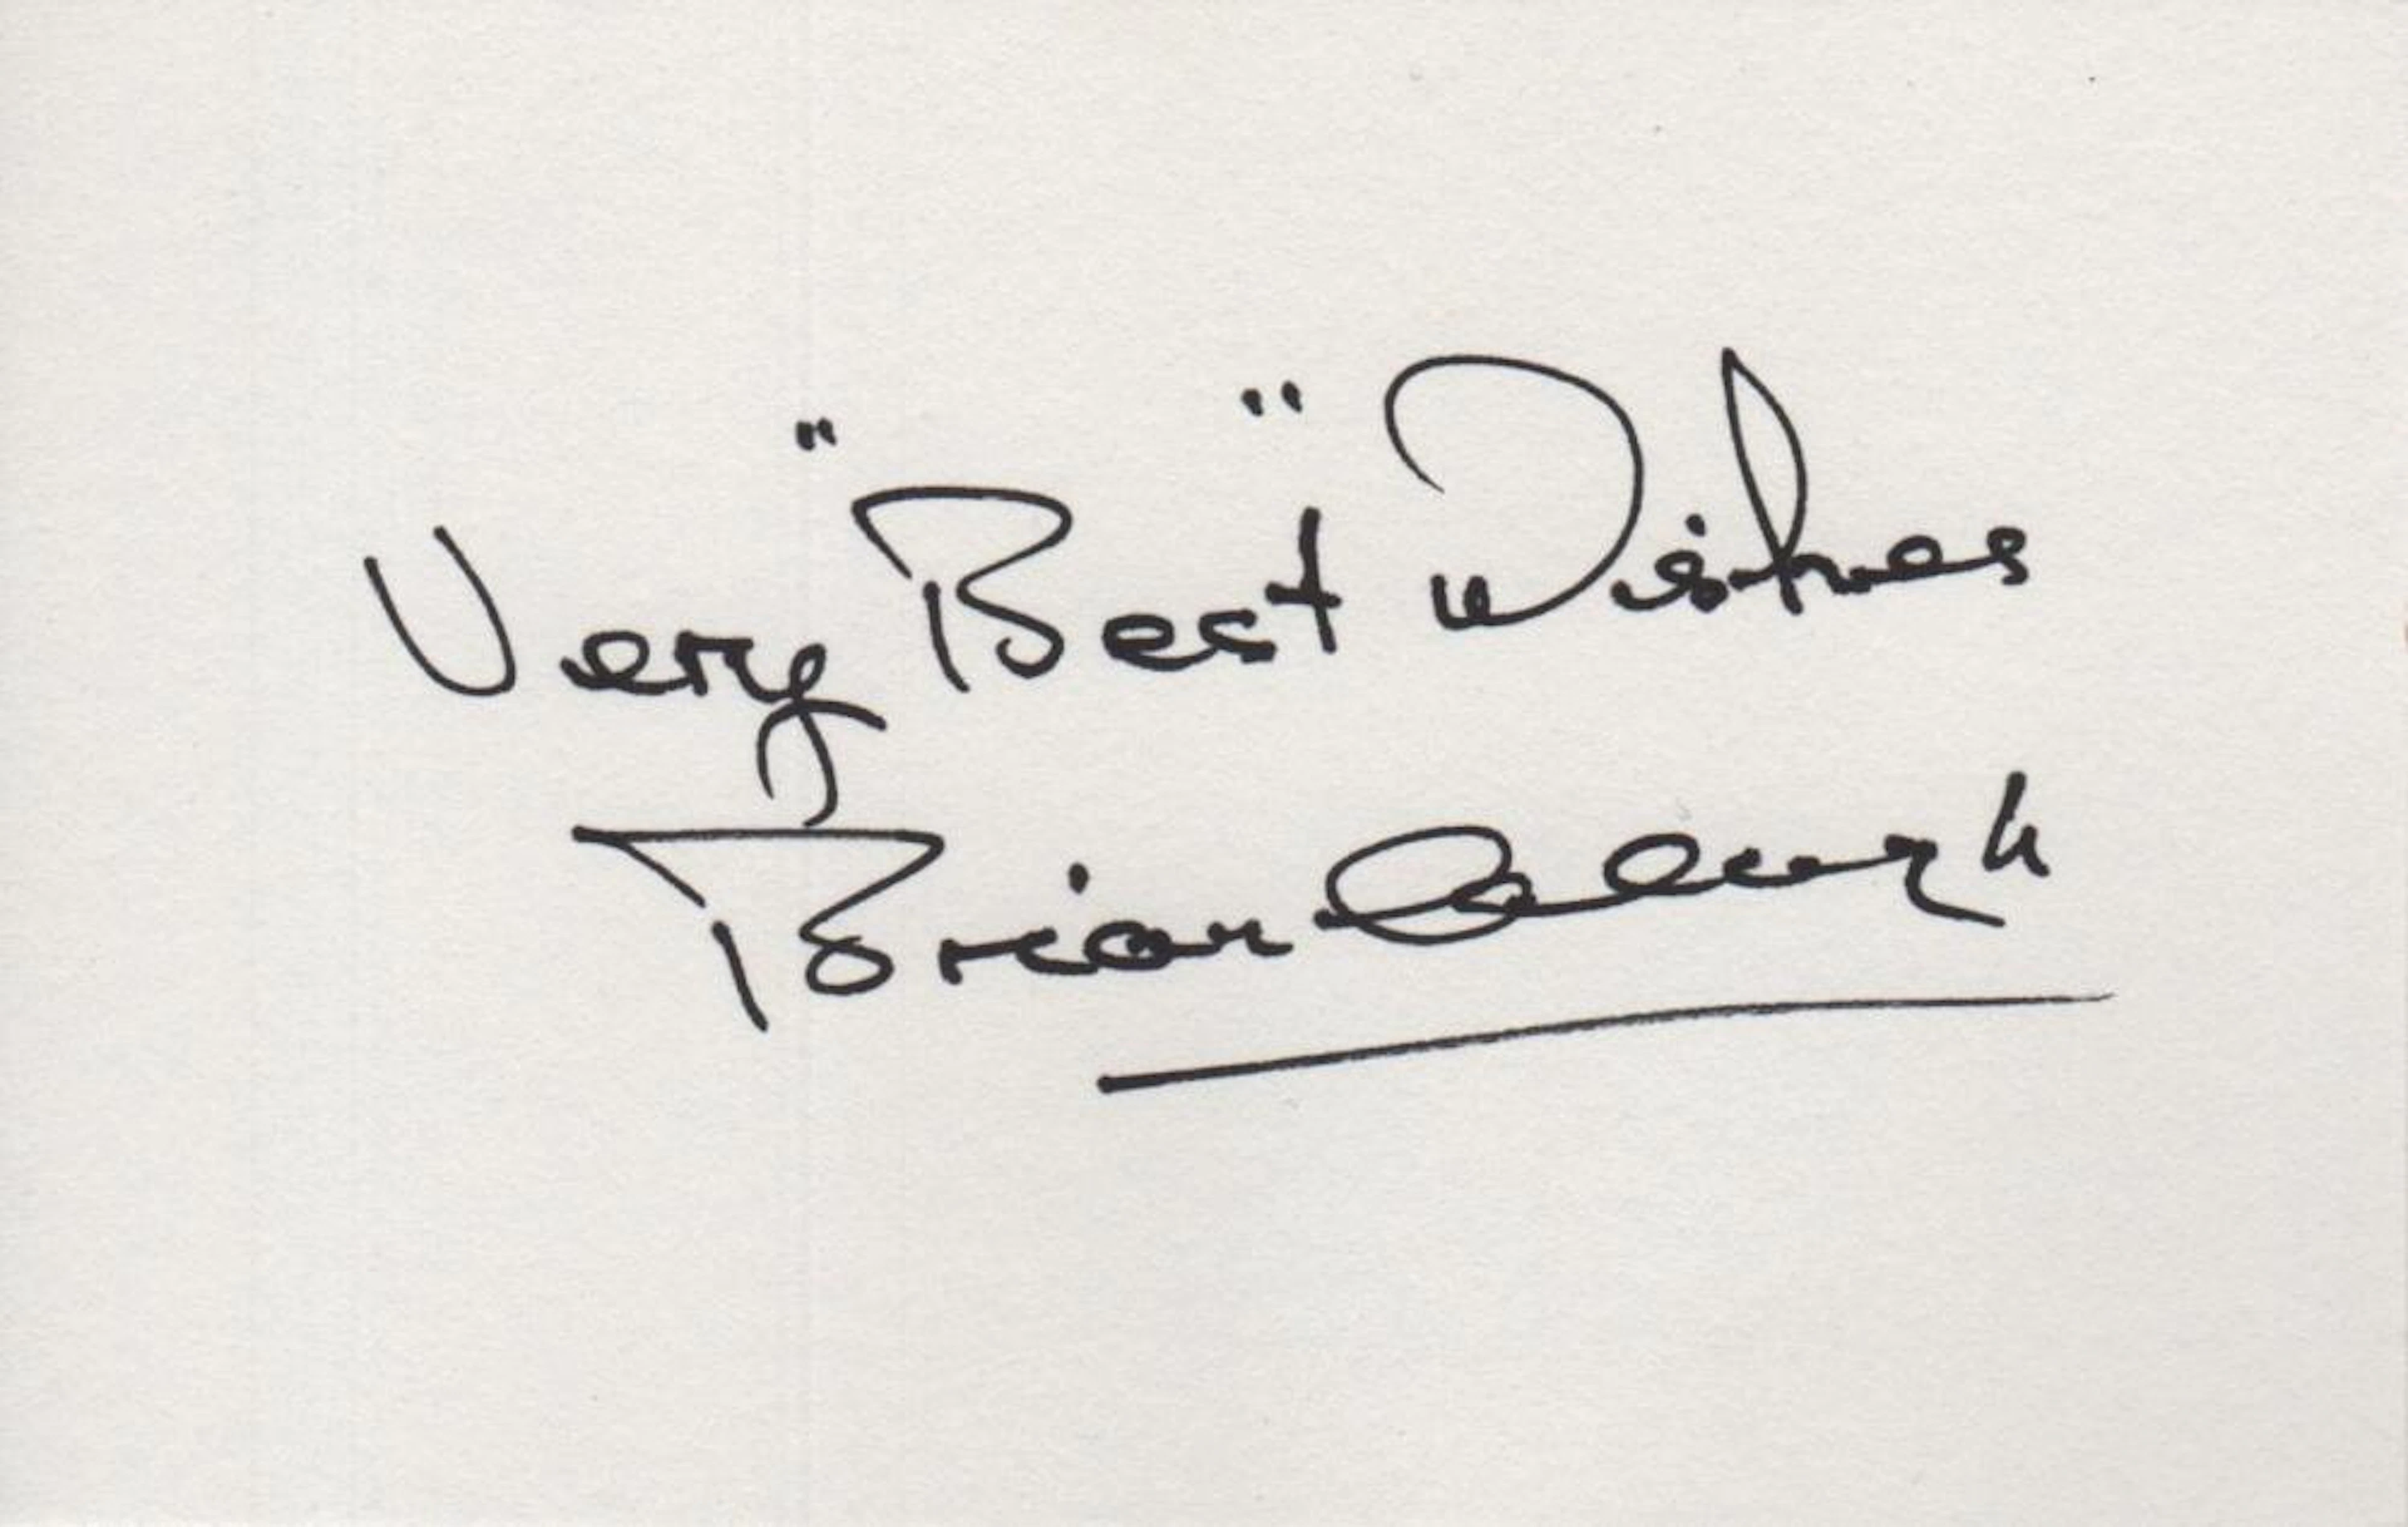 Very "Best" Wishes
Brian Clough